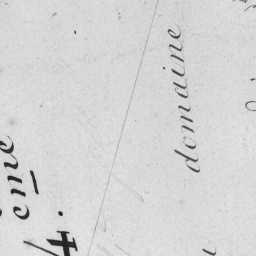 eme
4.
domaine